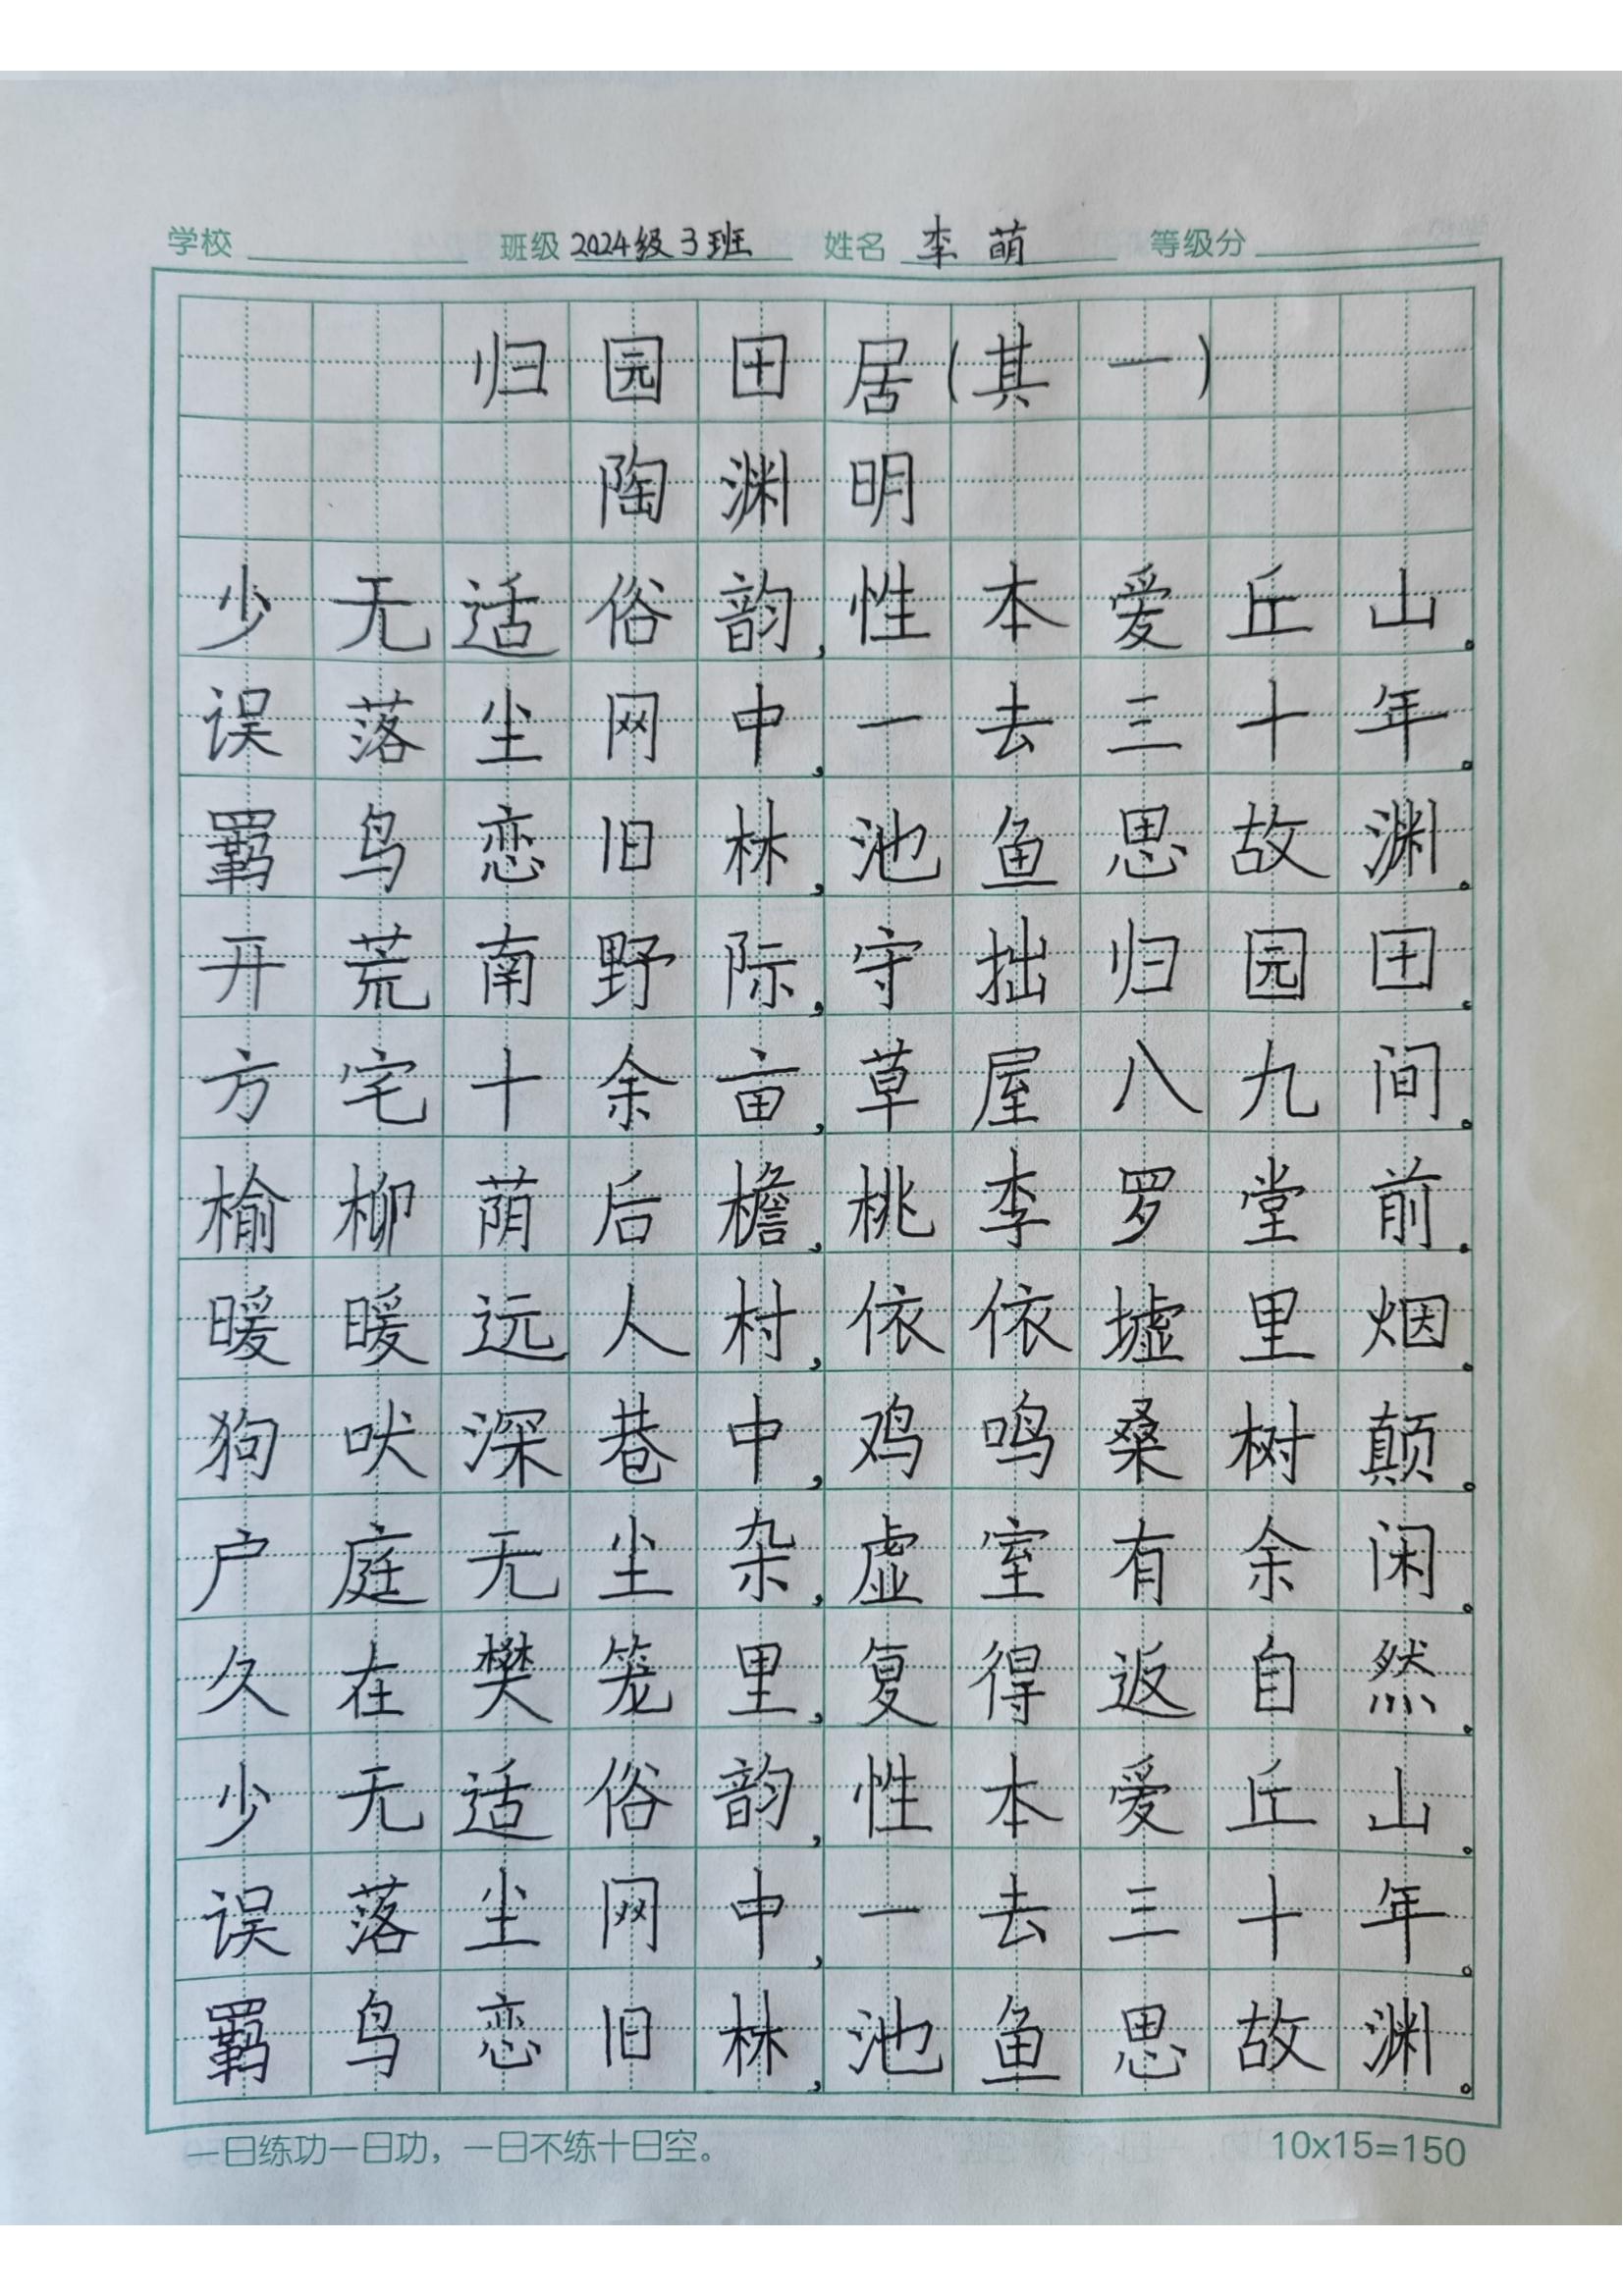 学校 班级 2024级3班 姓名 李萌 等级分
归园田居(其一)
陶渊明
少无适俗韵,性本爱丘山。
误落尘网中,一去三十年。
羁鸟恋旧林,池鱼思故渊。
开荒南野际,守拙归园田。
方宅十余亩,草屋八九间。
榆柳荫后檐,桃李罗堂前。
暖暖远人村,依依墟里烟。
狗吠深巷中,鸡鸣桑树颠。
户庭无尘杂,虚室有余闲。
久在樊笼里,复得返自然。
少无适俗韵,性本爱丘山。
误落尘网中,一去三十年。
羁鸟恋旧林,池鱼思故渊。
一日练功一日功，一日不练十日空。 10x15=150